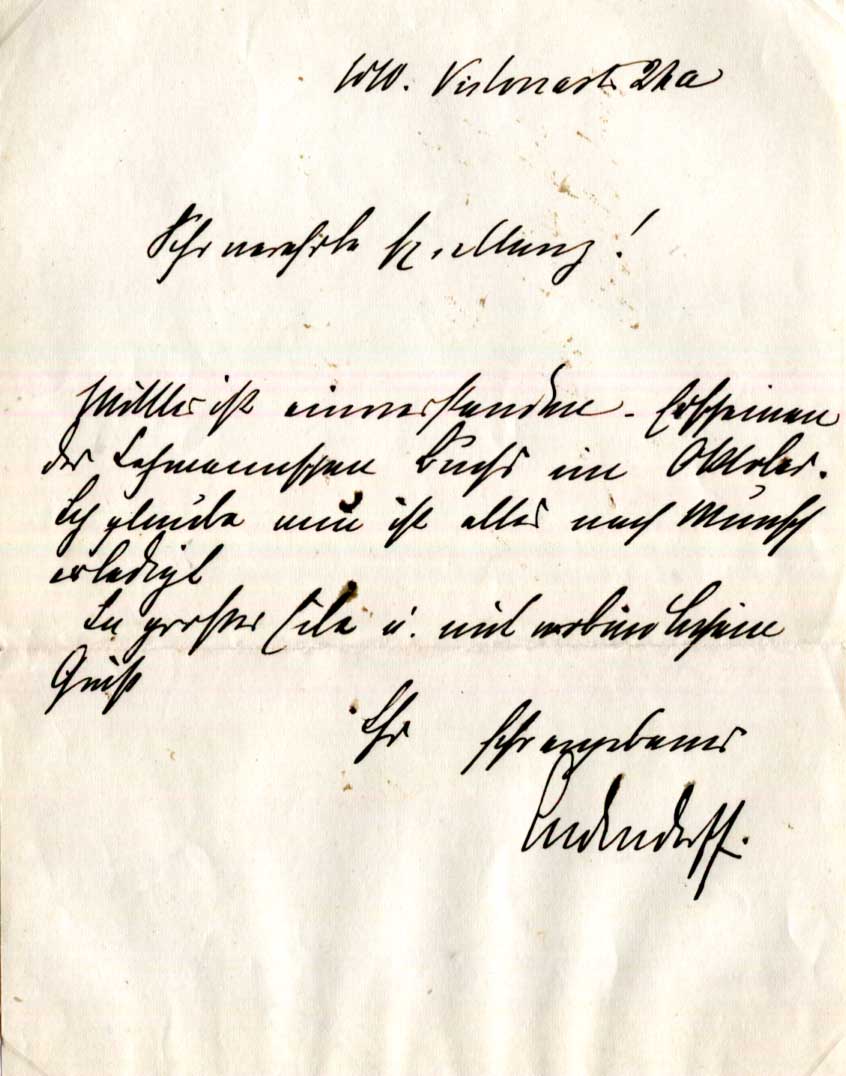 W10. Viktoriastr 24a
Sehr verehrte Exzellenz!
Mittler ist einverstanden - Erscheinen
des Lehmannschen Buchs im Oktober.
Ich glaube nun ist alles nach Wunsch
erledigt
In großer Eile u. mit verbindlichem
Gruß
Ihr sehr ergebener
Ludendorff.